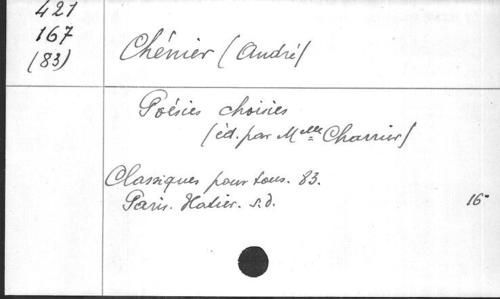 421
167
(83)
Chénier (André)
Poésies choisies
(éd. par Melle Charrier)
Classiques pour tous. 83.
Paris. Hatier. s.d. 16°